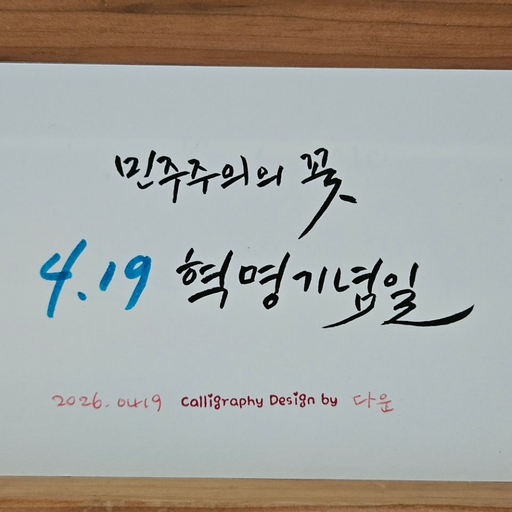 민주주의의 꽃
4.19 혁명기념일
2026.0419 Calligraphy Design by 다운